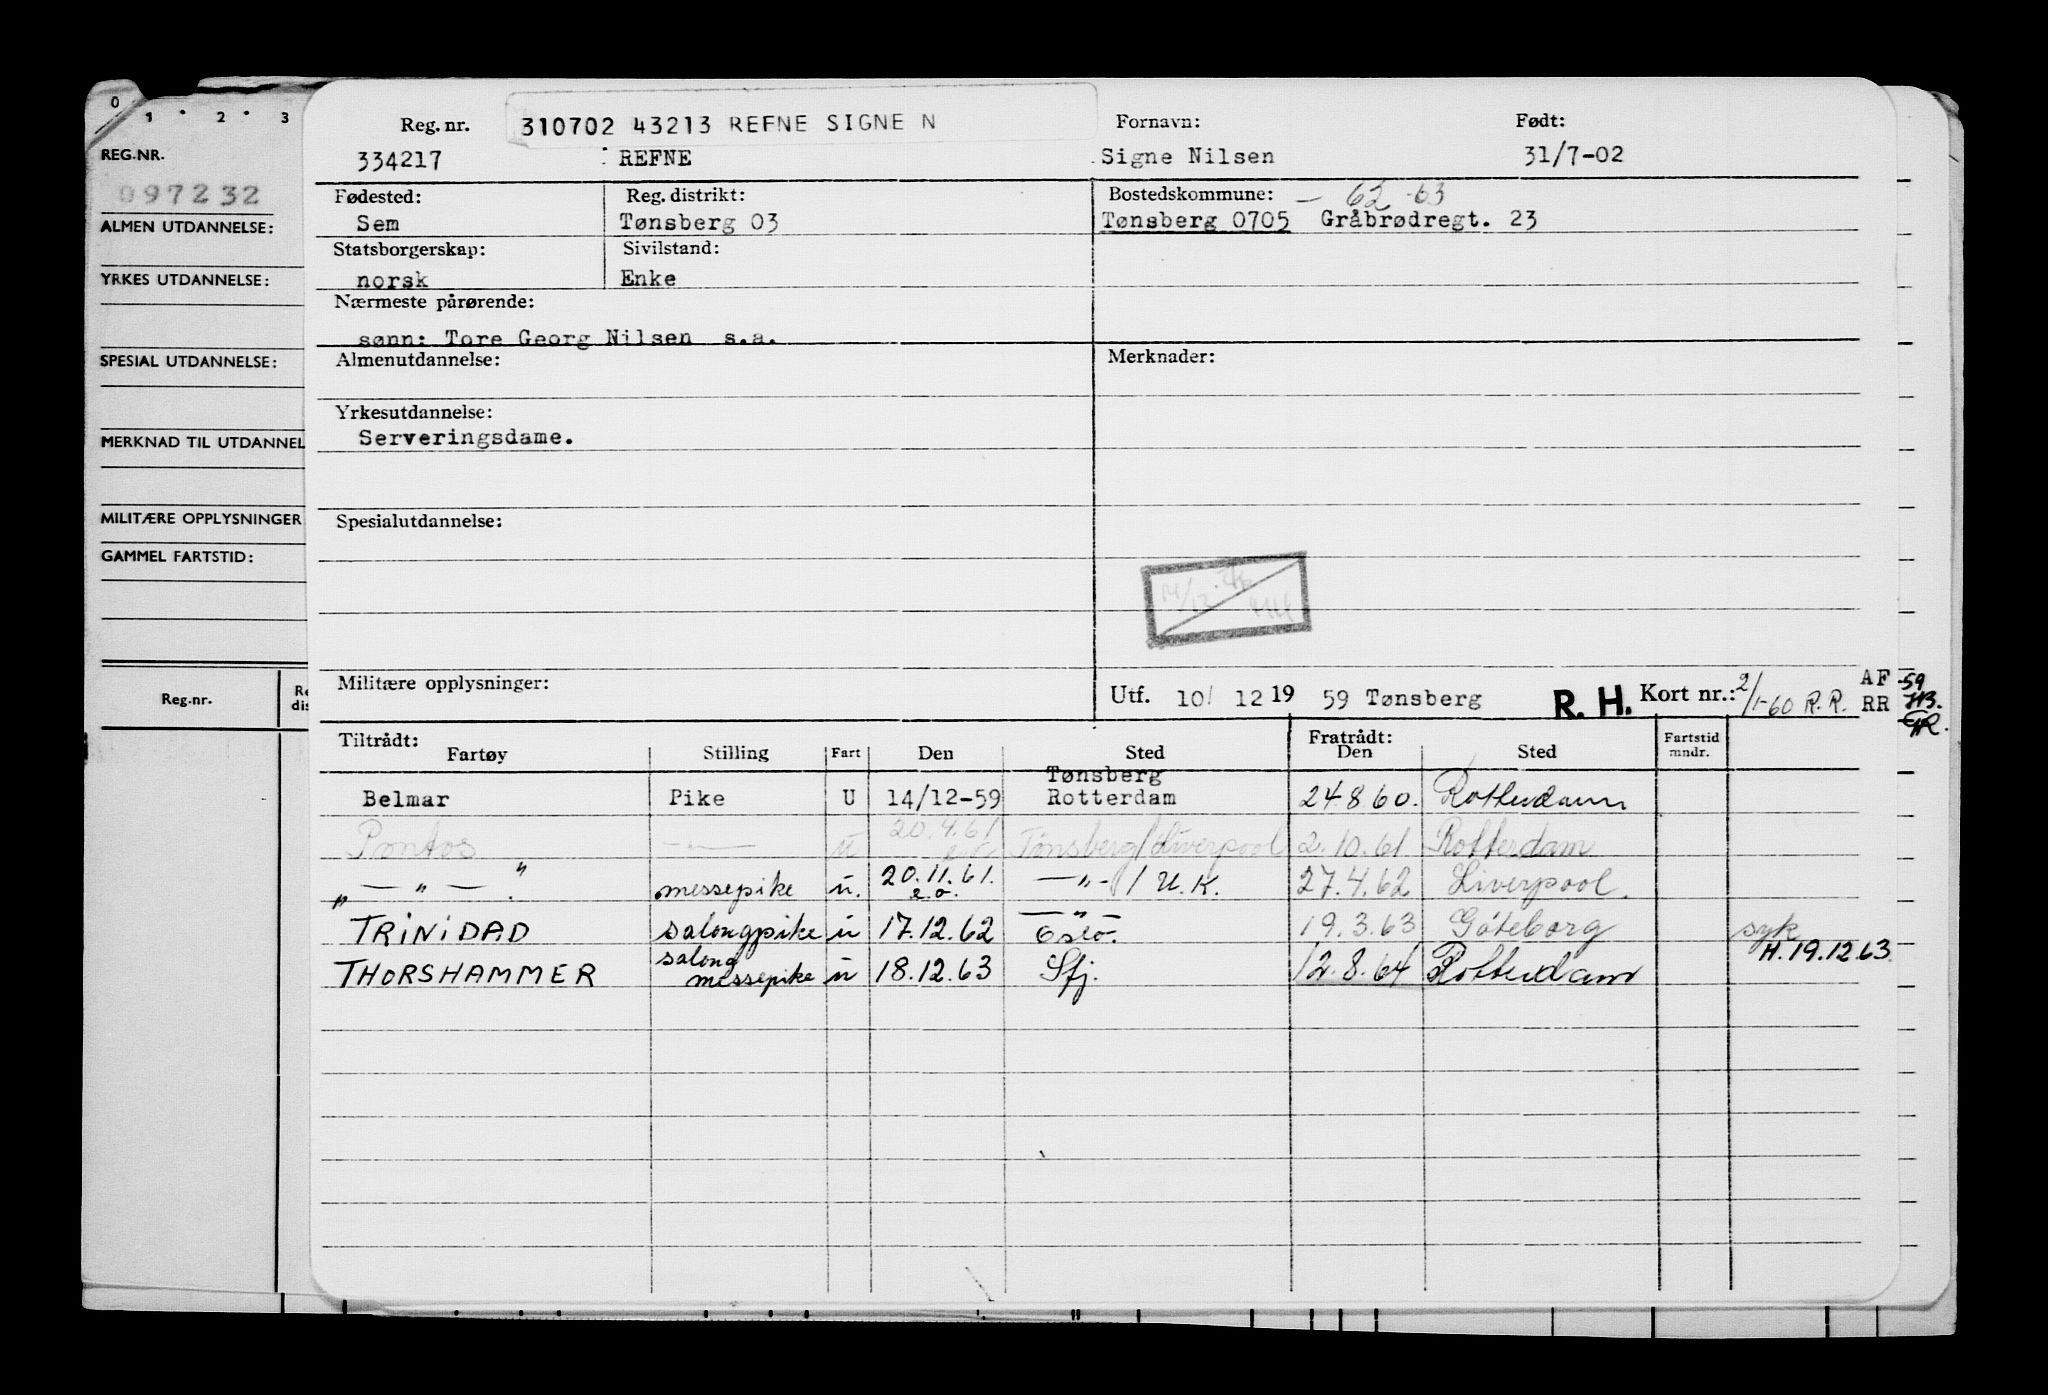 0 1 2 3
REG.NR.
097232
ALMEN UTDANNELSE:
YRKES UTDANNELSE:
SPESIAL UTDANNELSE:
MERKNAD TIL UTDANNEL
MILITÆRE OPPLYSNINGER
GAMMEL FARTSTID:
Reg.nr.
Re
dis
Reg. nr. 310702 43213 REFNE SIGNE N Fornavn: Født:
334217 REFNE Signe Nilsen 31/7-02
Fødested: Reg. distrikt: Bostedskommune: – 62 -63
Sem Tønsberg 03 Tønsberg 0705 Gråbrødregt. 23
Statsborgerskap: Sivilstand:
norsk Enke
Nærmeste pårørende:
sønn: Tore Georg Nilsen s.a.
Almenutdannelse: Merknader:
Yrkesutdannelse:
Serveringsdame.
Spesialutdannelse:
Militære opplysninger: Utf. 10/ 12 19 59 Tønsberg R. H. Kort nr.: 2/1-60 R.R. AF -59
RR
Tiltrådt: Fratrådt:
Fartøy Stilling Fart Den Sted Den Sted Fartstid mndr.
Tønsberg
Belmar Pike U 14/12-59 Rotterdam 24.8.60. Rotterdam
Pontos —"— u 20.4.61 Tønsberg/Liverpool 2.10.61 Rotterdam
" — " — " messepike u. 20.11.61. e.o. —"-/U.K. 27.4.62 Liverpool.
TRINIDAD salongpike u 17.12.62 —"— Oslo. 19.3.63 Göteborg syk
H. 19.12.63
THORSHAMMER salong messepike u 18.12.63 Sfj. 12.8.64 Rotterdam